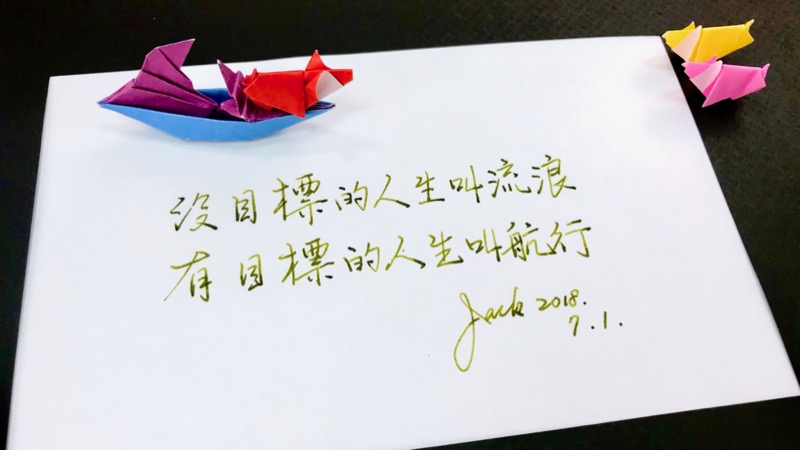 没目標的人生叫流浪
有目標的人生叫航行
Jack 2018.
7.1.